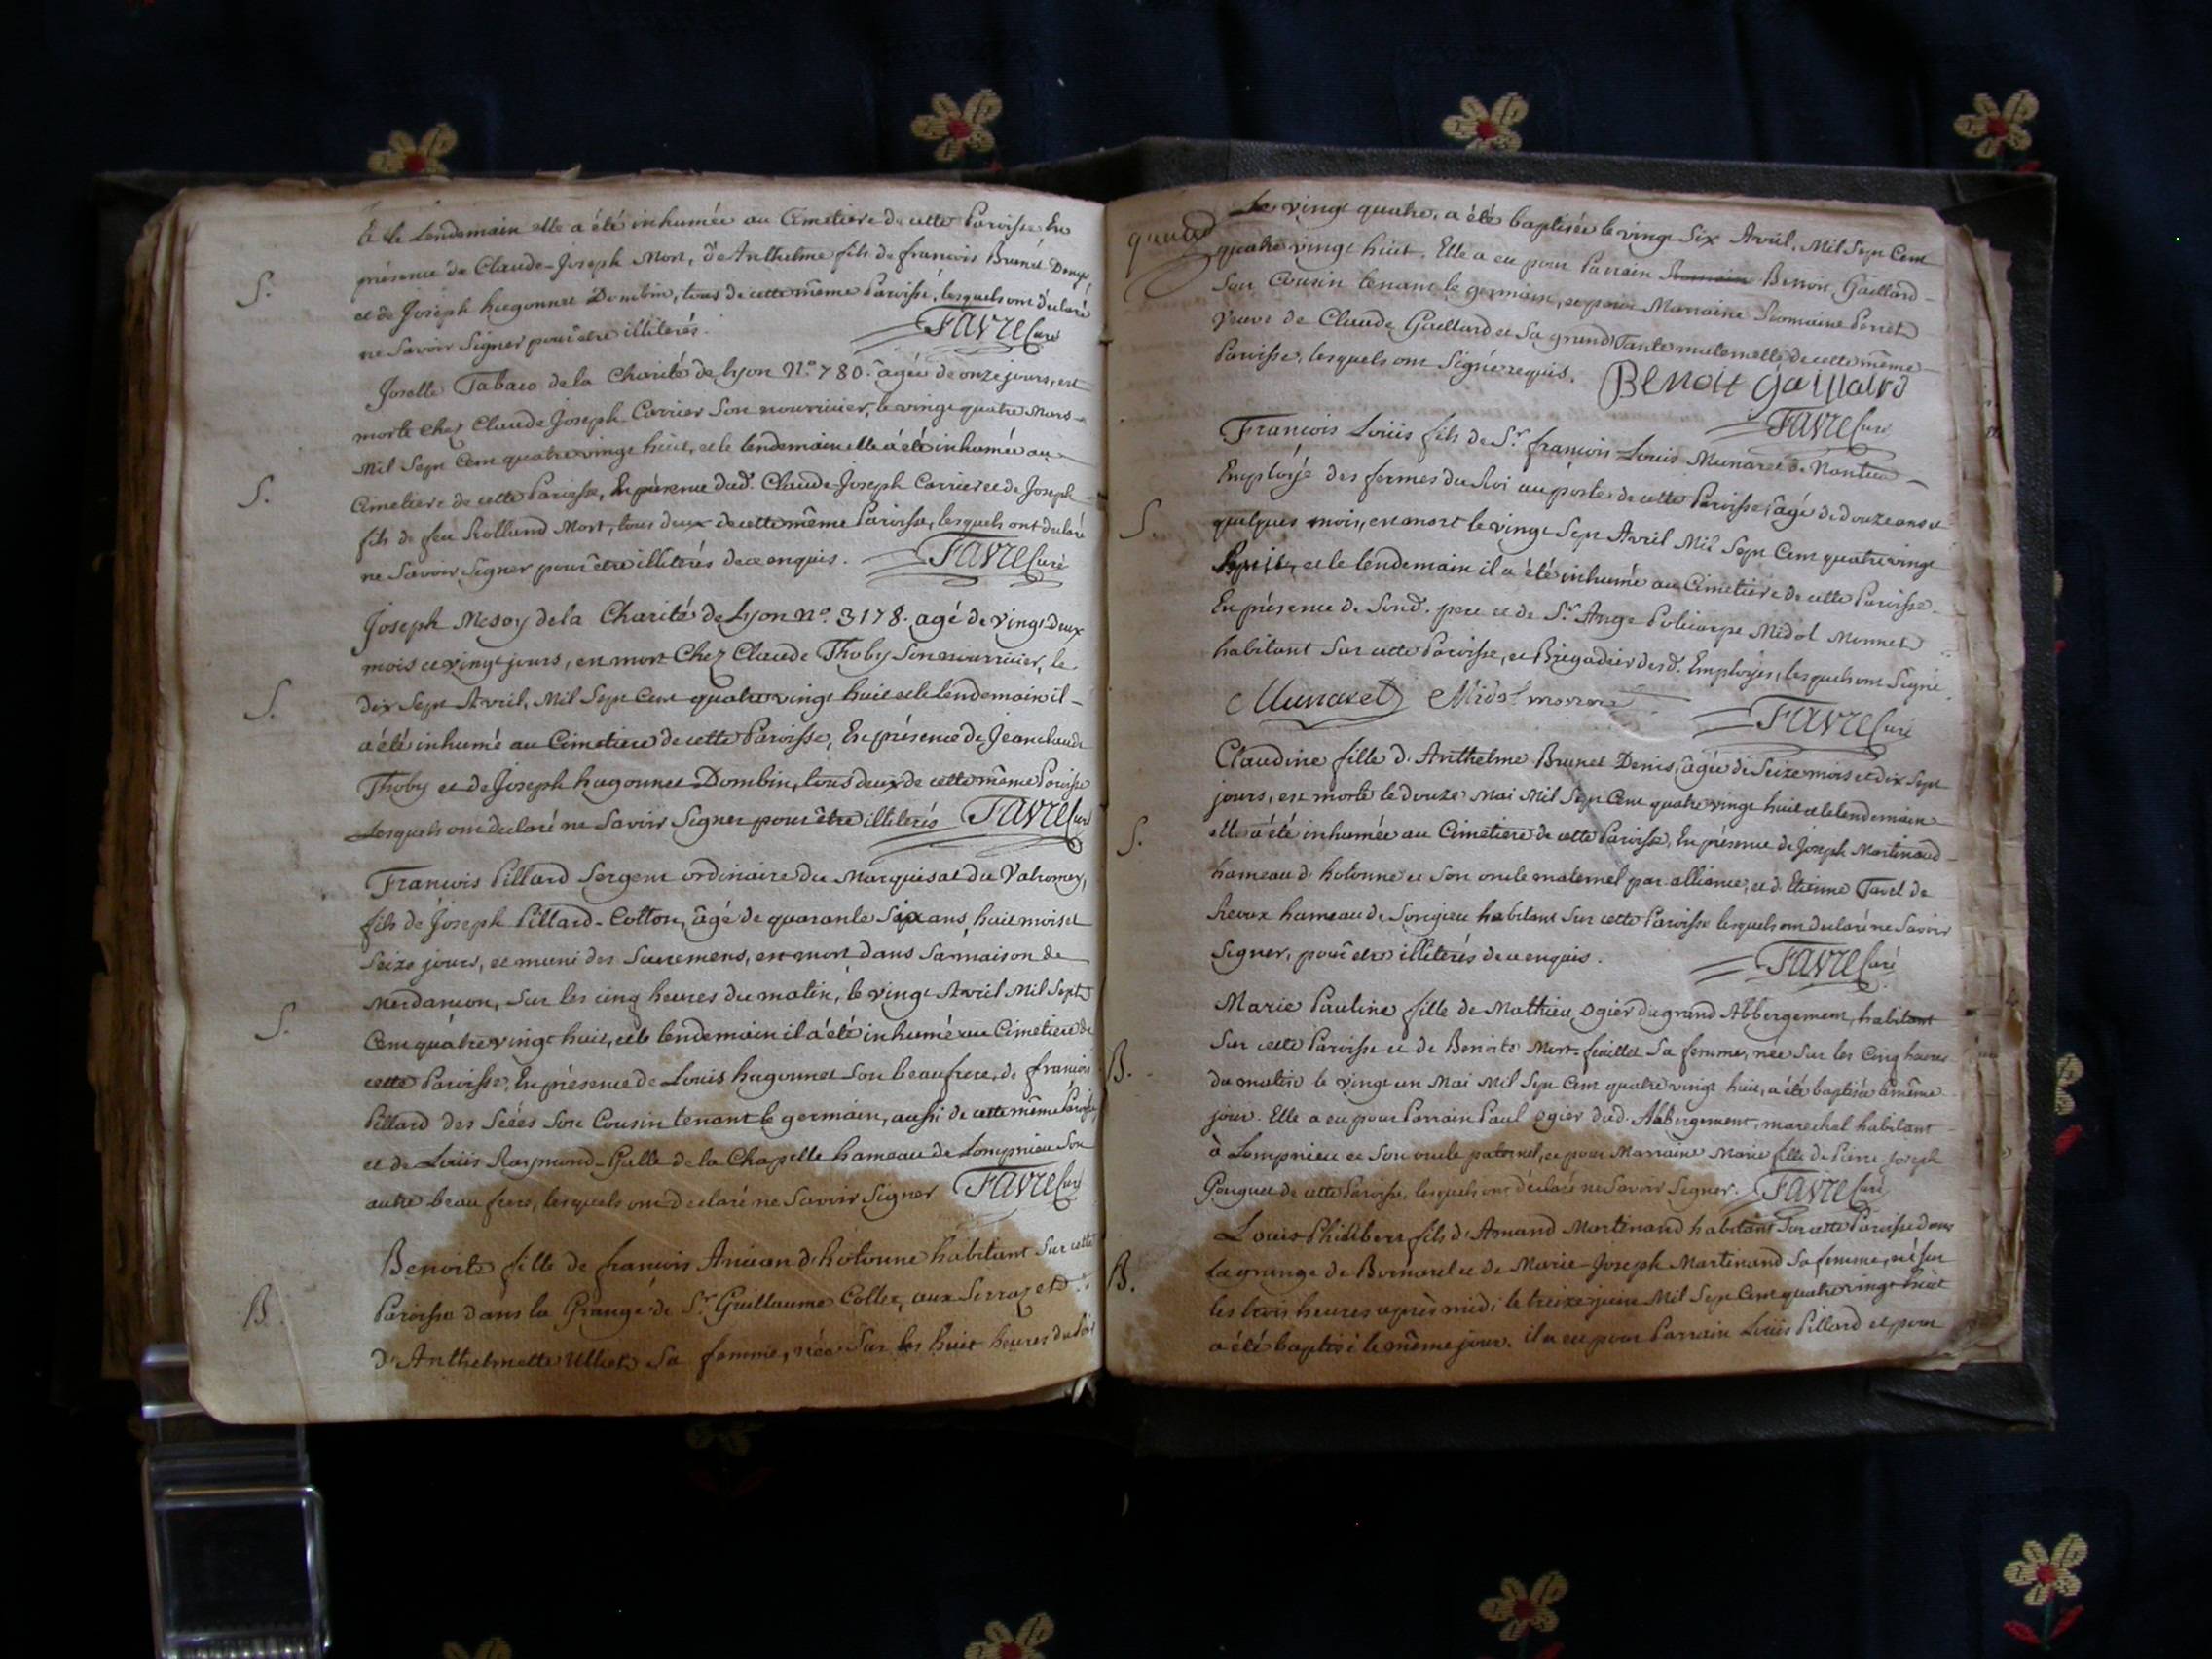 Et le Lendemain elle a été inhumée au Cimetiere de cette Paroisse En
S.
présence de Claude-Joseph Mort, d'Anthelme fils de francois Brunet
et de Joseph hugonnet Dombin, tous de cette même Paroisse, lesquels ont déclaré
ne Savoir Signer pour être illiterés. FAVRE Curé
Josette Tabaco de la Charité de Lyon N.º 780. âgée de onze jours, est
morte chez Claude Joseph Carrier Son nourricier, le vingt quatre Mars
Mil Sept Cent quatre vingt huit, et le lendemain elle a été inhumée au
S.
Cimetiere de cette Paroisse, En présence dud. Claude-Joseph Carrier et de Joseph
fils de feu Rolland Mort, tous deux de cette même Paroisse, lesquels ont declaré
ne Savoir Signer pour être illiterés de ce enquis. FAVRE Curé
Joseph Mesoy de la Charité de Lyon N.º 3178. agé de vingt Deux
mois et vingt jours, est mort Chez Claude Thoby Son nourricier, le
S.
dix Sept Avril, Mil Sept Cent quatre vingt huit et le lendemain il
a été inhumé au Cimetiere de cette Paroisse, En présence de Jeanclaude
Thoby et de Joseph hugonnet-Dombin, tous deux de cette même Paroisse
Lesquels ont declaré ne Savoir Signer pour être illiterés FAVRE Curé
Francois Pillard Sergent ordinaire du Marquisat du Valromey,
fils de Joseph Pillard-Cotton, âgé de quarante Six ans, huit mois et
Seize jours, et muni des Sacremens, est mort dans Sa maison de
Merdançon, Sur les cinq heures du matin, le vingt Avril Mil Sept
S.
Cent quatre vingt huit, et le lendemain il a été inhumé au Cimetiere de
cette Paroisse, En présence de Louis hugonnet Son beaufrere, de francois
Pillard des Séées Son Cousin tenant le germain, aussi de cette même Paroisse,
et de Loüis Raymond-Galle de la Chapelle hameau de Lompnieu Son
autre beau frere, lesquels ont declaré ne Savoir Signer FAVRE Curé
Benoite fille de francois Ancian d'hotonne habitant Sur cette
B.
Paroisse dans la Grange de S.r Guillaume Collet, aux Serrazet
d'Anthelmette Ulliet Sa femme, née Sur les huit heures du Soir
Le vingt quatre, a été baptisée le vingt Six Avril, Mil Sept Cent
quatre vingt huit. Elle a eu pour Parrain Benoit Gaillard
Son Cousin tenant le germain, et pour Marraine Romaine Perret
Veuve de Claude Gaillard et Sa grand Tante maternelle de cette même
Paroisse, lesquels ont Signé requis. BENoit Gaillard
FAVRE Curé
Francois Loüis fils de S.r francois-Louis Munaret de Nantua
Employé des fermes du Roi au poste de cette Paroisse, âgé de douze ans et
S.
quelques mois, est mort le vingt Sept Avril Mil Sept Cent quatre vingt
huit, et le lendemain il a été inhumé au Cimetiere de cette Paroisse.
En présence de Sond. pere et de S.r Ange Policarpe Midol Monnet
habitant Sur cette Paroisse, et Brigadier desd. Employés, lesquels ont Signé
Munaret Midol monnet FAVRE Curé
Claudine fille d'Anthelme Brunet Denis, âgée de Seize mois et dix Sept
jours, est morte le douze Mai Mil Sept Cent quatre vingt huit et le lendemain
S.
elle a été inhumée au Cimetiere de cette Paroisse, En présence de Joseph Martinand
hameau d'hotonne et Son oncle maternel par alliance, et d'Etienne Tavel de
hameau de Songieu habitant Sur cette Paroisse lesquels ont declaré ne Savoir
Signer, pour être illiterés de ce enquis. FAVRE Curé
Marie Pauline fille de Mathieu Ogier du grand Abbergement, habitant
Sur cette Paroisse et de Benoite Mort-feuillet Sa femme, née Sur les Cinq heures
B.
du matin le vingt un Mai Mil Sept Cent quatre vingt huit, a été baptisée le même
jour. Elle a eu pour Parrain Paul Ogier dud. Abbergement, marechal habitant
à Lompnieu et Son oncle paternel, et pour Marraine Marie fille de Pierre-Joseph
Gouguet de cette Paroisse, lesquels ont déclaré ne Savoir Signer. FAVRE Curé
Louis Philibert fils d'Amand Martinand habitant Sur cette Paroisse dans
B.
La grange de Bornarel et de Marie-Joseph Martinand Sa femme, né Sur
les trois heures après midi le treize juin Mil Sept Cent quatre vingt huit
a été baptisé le même jour. il a eu pour Parrain Loüis Pillard et pour